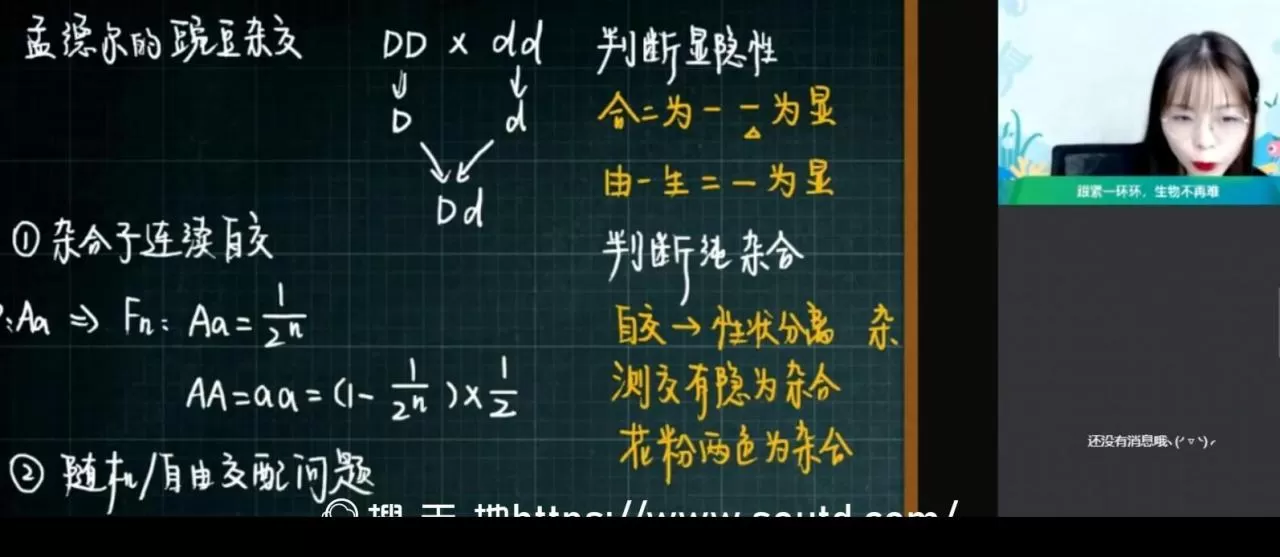 孟德尔的豌豆杂交
DD × dd
D d
Dd
① 杂合子连续自交
:Aa ⇒ Fn: Aa = 1/2ⁿ
AA=aa=(1-1/2ⁿ)×1/2
② 随机/自由交配问题
判断显隐性
合二为一 一为显
由一生二 一为显
判断纯杂合
自交→性状分离 杂
测交有隐为杂合
花粉两色为杂合
跟紧一环环，生物不再难
还没有消息哦
https://www.soutd.com/